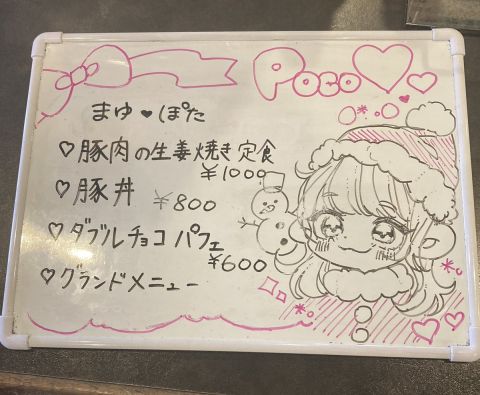 Poco♡♡
まゆ♥ぽた
♡豚肉の生姜焼き定食
￥1000
♡豚丼 ￥800
♡ダブルチョコパフェ
￥600
♡グランドメニュー